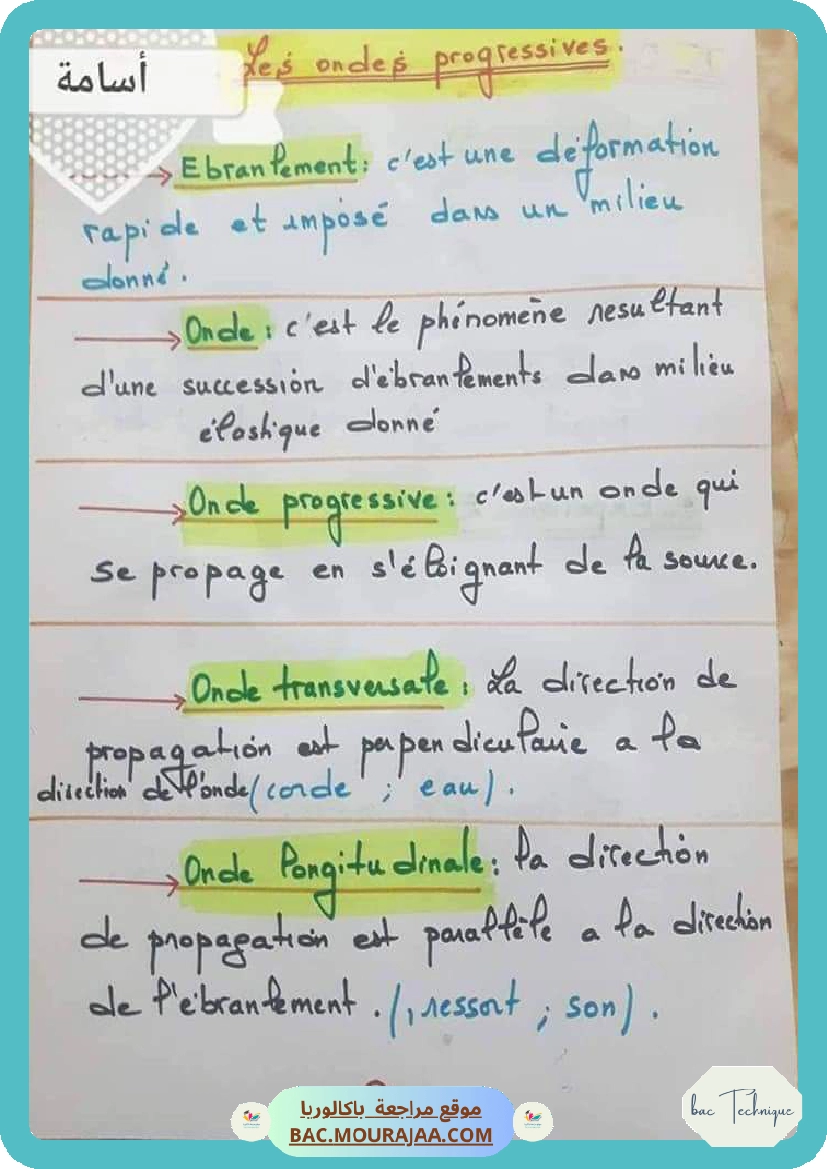 أسامة
Les ondes progressives.
Ebranlement : c'est une déformation
rapide et imposé dans un milieu
donné.
Onde : c'est le phénomène resultant
d'une succession d'ébranlements dans milieu
élastique donné
Onde progressive : c'est un onde qui
se propage en s'éloignant de la source.
Onde transversale : La direction de
propagation est perpendiculaire a la
direction de l'onde (corde ; eau).
Onde longitudinale : la direction
de propagation est parallèle a la direction
de l'ébranlement. (, ressort ; son).
موقع مراجعة باكالوريا
BAC.MOURAJAA.COM
bac Technique